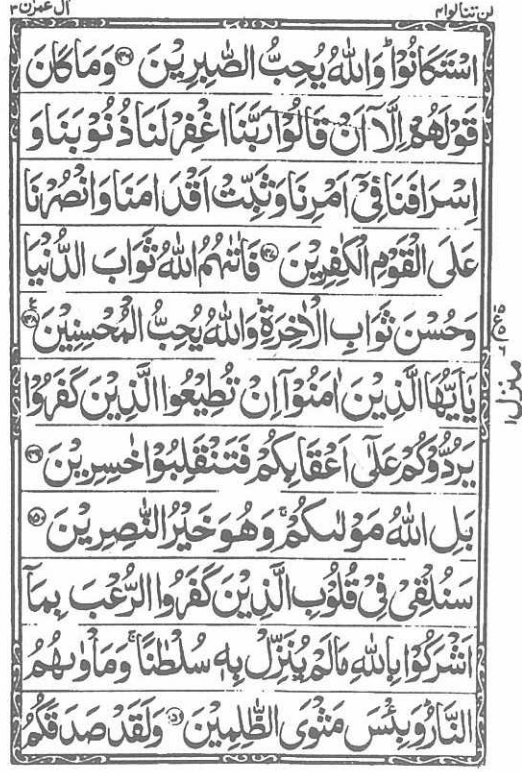 لن تنالوا ٤ آل عمرن ٣
اسْتَكَانُوْا ؕ وَاللّٰهُ يُحِبُّ الصّٰبِرِيْنَ ۝۱۴۶ وَمَا كَانَ
قَوْلَهُمْ اِلَّاۤ اَنْ قَالُوْا رَبَّنَا اغْفِرْ لَنَا ذُنُوْبَنَا وَ
اِسْرَافَنَا فِيْۤ اَمْرِنَا وَثَبِّتْ اَقْدَامَنَا وَانْصُرْنَا
عَلَى الْقَوْمِ الْكٰفِرِيْنَ ۝۱۴۷ فَاٰتٰىهُمُ اللّٰهُ ثَوَابَ الدُّنْيَا
وَحُسْنَ ثَوَابِ الْاٰخِرَةِ ؕ وَاللّٰهُ يُحِبُّ الْمُحْسِنِيْنَ ۝۱۴۸ ع
يٰۤاَيُّهَا الَّذِيْنَ اٰمَنُوْۤا اِنْ تُطِيْعُوا الَّذِيْنَ كَفَرُوْا
يَرُدُّوْكُمْ عَلٰۤى اَعْقَابِكُمْ فَتَنْقَلِبُوْا خٰسِرِيْنَ ۝۱۴۹
بَلِ اللّٰهُ مَوْلٰىكُمْ ۚ وَهُوَ خَيْرُ النّٰصِرِيْنَ ۝۱۵۰
سَنُلْقِيْ فِيْ قُلُوْبِ الَّذِيْنَ كَفَرُوا الرُّعْبَ بِمَاۤ
اَشْرَكُوْا بِاللّٰهِ مَا لَمْ يُنَزِّلْ بِهٖ سُلْطٰنًا ۚ وَمَاْوٰىهُمُ
النَّارُ ؕ وَبِئْسَ مَثْوَى الظّٰلِمِيْنَ ۝۱۵۱ وَلَقَدْ صَدَقَكُمُ
منزل ۱